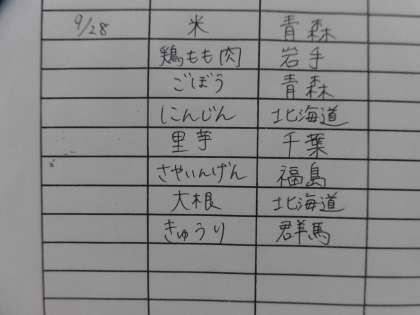 9/28 米 青森
鶏もも肉 岩手
ごぼう 青森
にんじん 北海道
里芋 千葉
さやいんげん 福島
大根 北海道
きゅうり 群馬